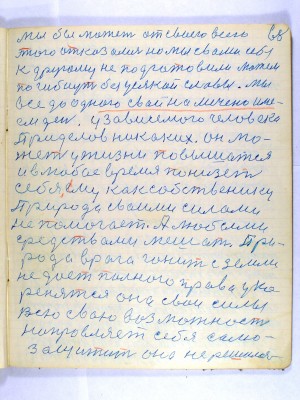 мы бы может от свього всего 88
этого отказалися но мы с вами себя
к другому не подготовили можем
погибнуть без усякой славы. мы
все до одного свай на личено име-
ем ден. узависемого человека
приделов никаких. он мо-
жет ужизни повышатся
и в любое время понизеть
себя, ему как собственику
природа своими силами
не помогает. А любыми
средствами мешает. При-
рода врага гонит с земли
не дает полного права уко-
ренятся она свои силы
всю сваю возможность
направляет себя само-
защитит она не решила-